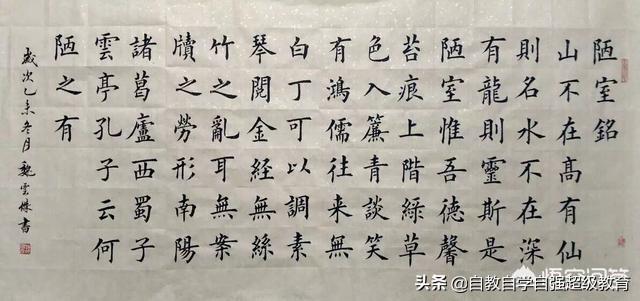 陋室銘
山不在高有仙
則名水不在深
有龍則靈斯是
陋室惟吾德馨
苔痕上階綠草
色入簾青談笑
有鴻儒往来無
白丁可以調素
琴閱金経無絲
竹之亂耳無案
牘之勞形南陽
諸葛廬西蜀子
雲亭孔子云何
陋之有
歲次乙未冬月魏雲書
悟空问答
头条 @自教自学自强超级教育